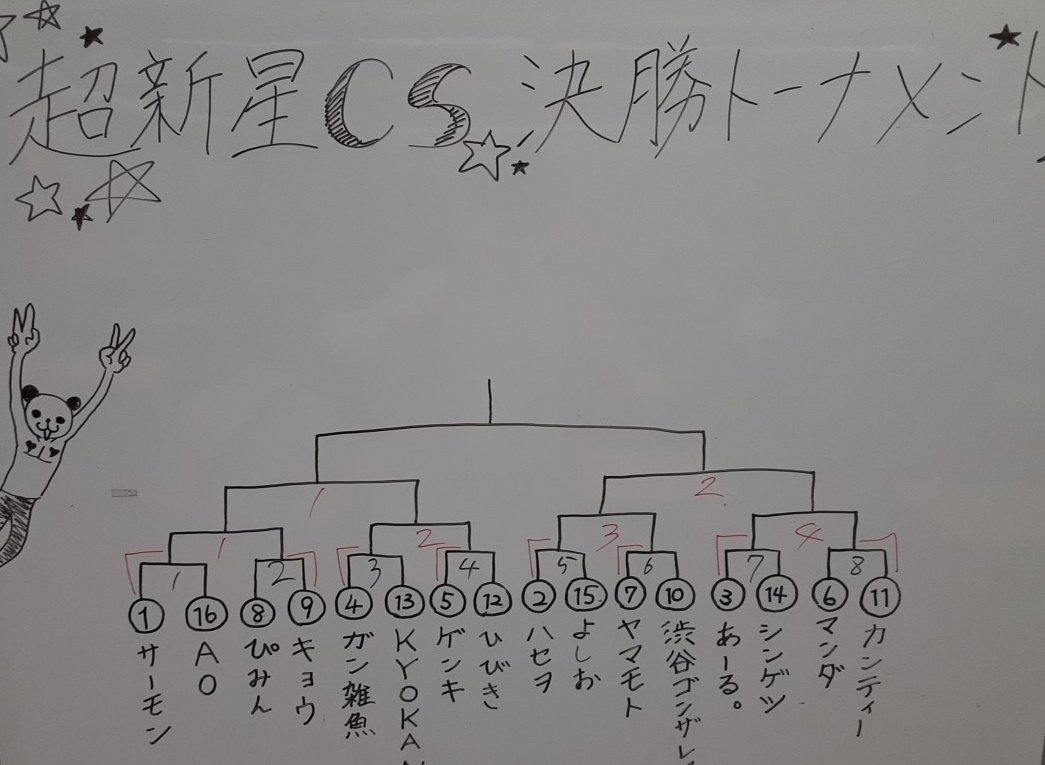 超新星CS 決勝トーナメント
1 2
1 2 3 4
1 2 3 4 5 6 7 8
① ⑯ ⑧ ⑨ ④ ⑬ ⑤ ⑫ ② ⑮ ⑦ ⑩ ③ ⑭ ⑥ ⑪
サーモン
AO
ぴみん
キョウ
ガン雑魚
KYOKA
ゲンキ
ひびき
ハセヲ
よしお
ヤマモト
渋谷ゴンザレ
あーる。
シンゲツ
マンダ
カンティー